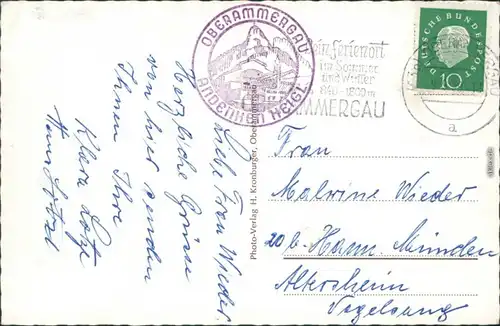 OBERAMMERGAU
ANDENKEN HEIGL
Ferienort
im Sommer
und Winter
840 - 1800 m
AMMERGAU
DEUTSCHE BUNDESPOST
10
a
Liebe Frau Wieder.
Herzliche Grüsse
von hier senden
Ihnen Ihre
Klara
Photo-Verlag H. Kronburger, Oberammergau
Frau
Malvine Wieder
20b Hann. Münden
Altersheim
Vogelsang